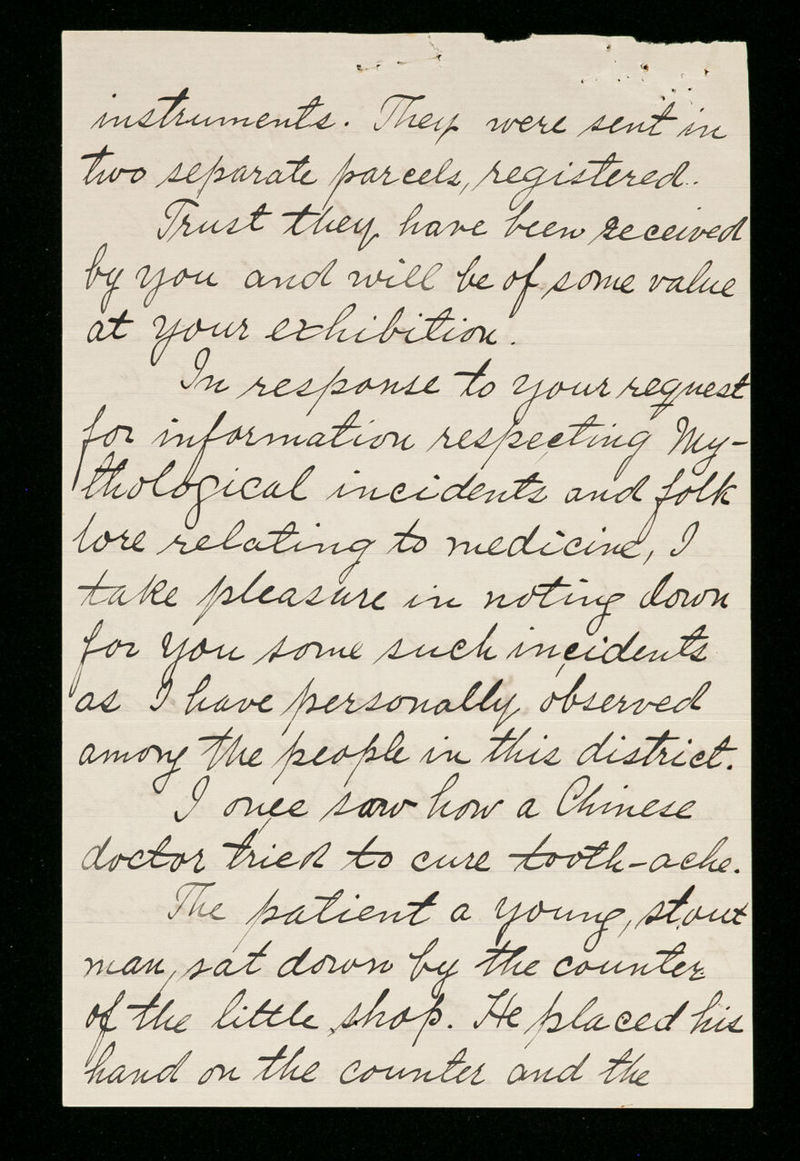 instruments. They were sent in
two separate parcels, registered.
Trust they have been received
by you and will be of some value
at your exhibition.
In response to your request
for information respecting My-
thological incidents and folk
lore relating to medicine, I
take pleasure in noting down
for you some such incidents
as I have personally observed
among the people in this district.
I once saw how a Chinese
doctor tried to cure tooth-ache.
The patient a young, stout
man, sat down by the counter
of the little shop. He placed his
hand on the counter and the